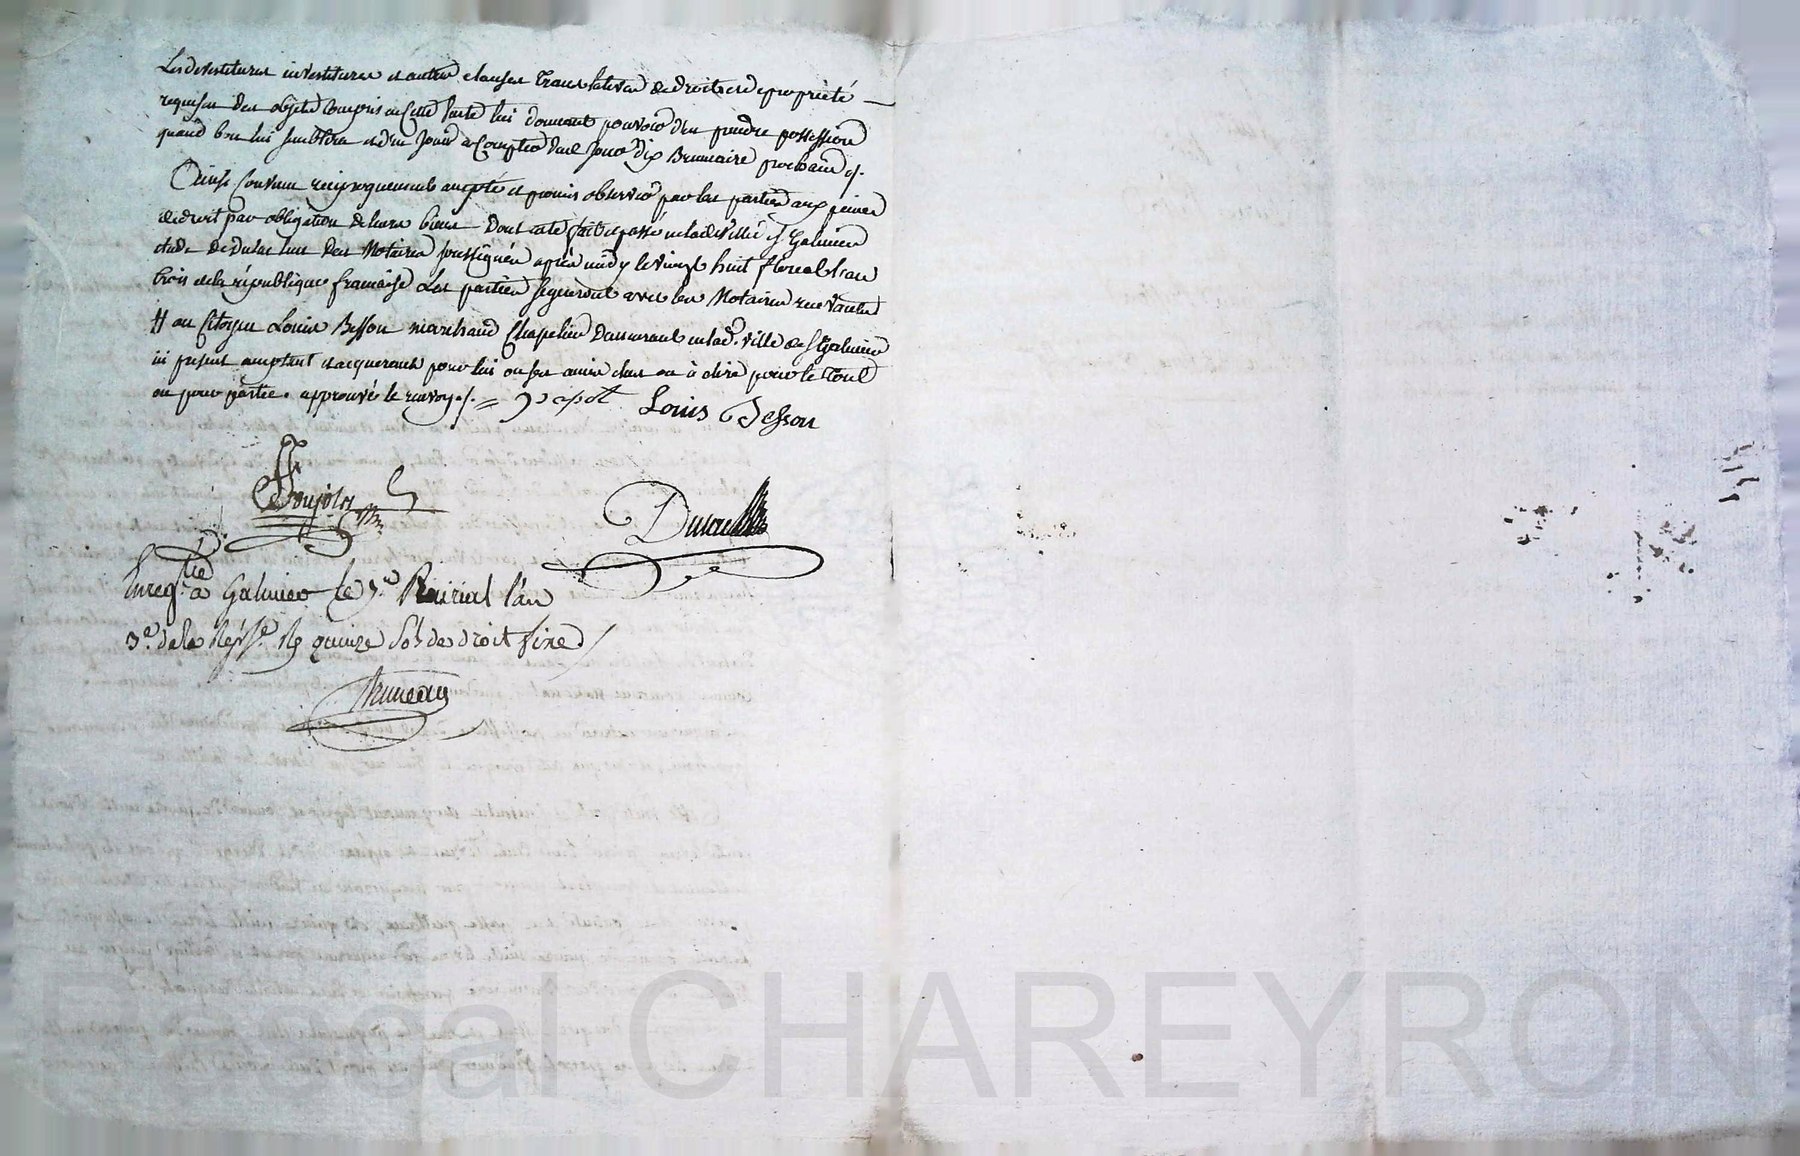 Les devestitures investitures et autres clauses translatives de droits et de propriété
requises des objets compris en cette vente lui donnant pouvoir d'en prendre possession
quand bon lui semblera et d'en jouir à compter dud. jour dix Brumaire prochain ./.
Ainsi convenu reciproquement accepté et promis observer par les parties aux peines
de droit par obligation de leurs biens Dont acte fait et passé en lad. ville de Galmier
étude de Dulac l'un des Notaires soussignés après midy le vingt huit floreal l'an
trois de la république francaise Les parties signeront avec les Notaires
# au Citoyen Louis Besson marchand Chapelier demeurant en lad. ville de Galmier
ici present acceptant et acquerant pour lui ou ses amis élus ou à élire pour le tout
ou pour partie. approuvé le renvoy ./.
Louis Besson
Boujols
Dulac
Enreg.tré à Galmier le Prairial l'an
3.e de la Rép. quinze sols de droit fixe
Pascal CHAREYRON